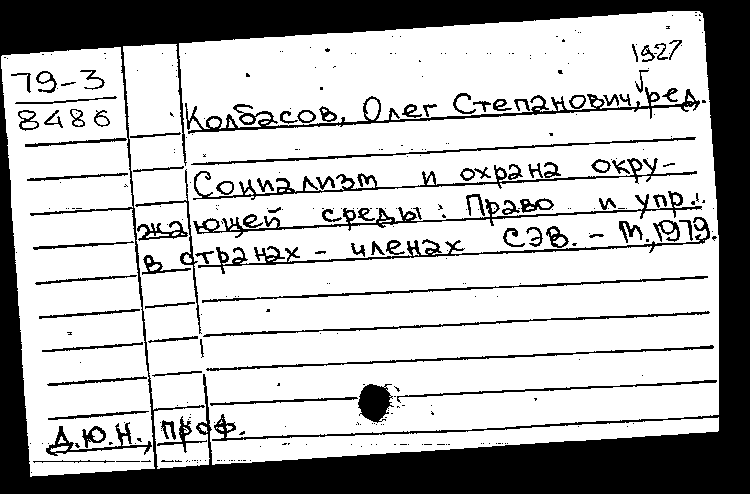 1927
79-3
8486
Колбасов, Олег Степанович, ред.
Социализм и охрана окру-
жающей среды: Право и упр.
в странах - членах СЭВ. - М., 1979.
Д.Ю.Н., проф.